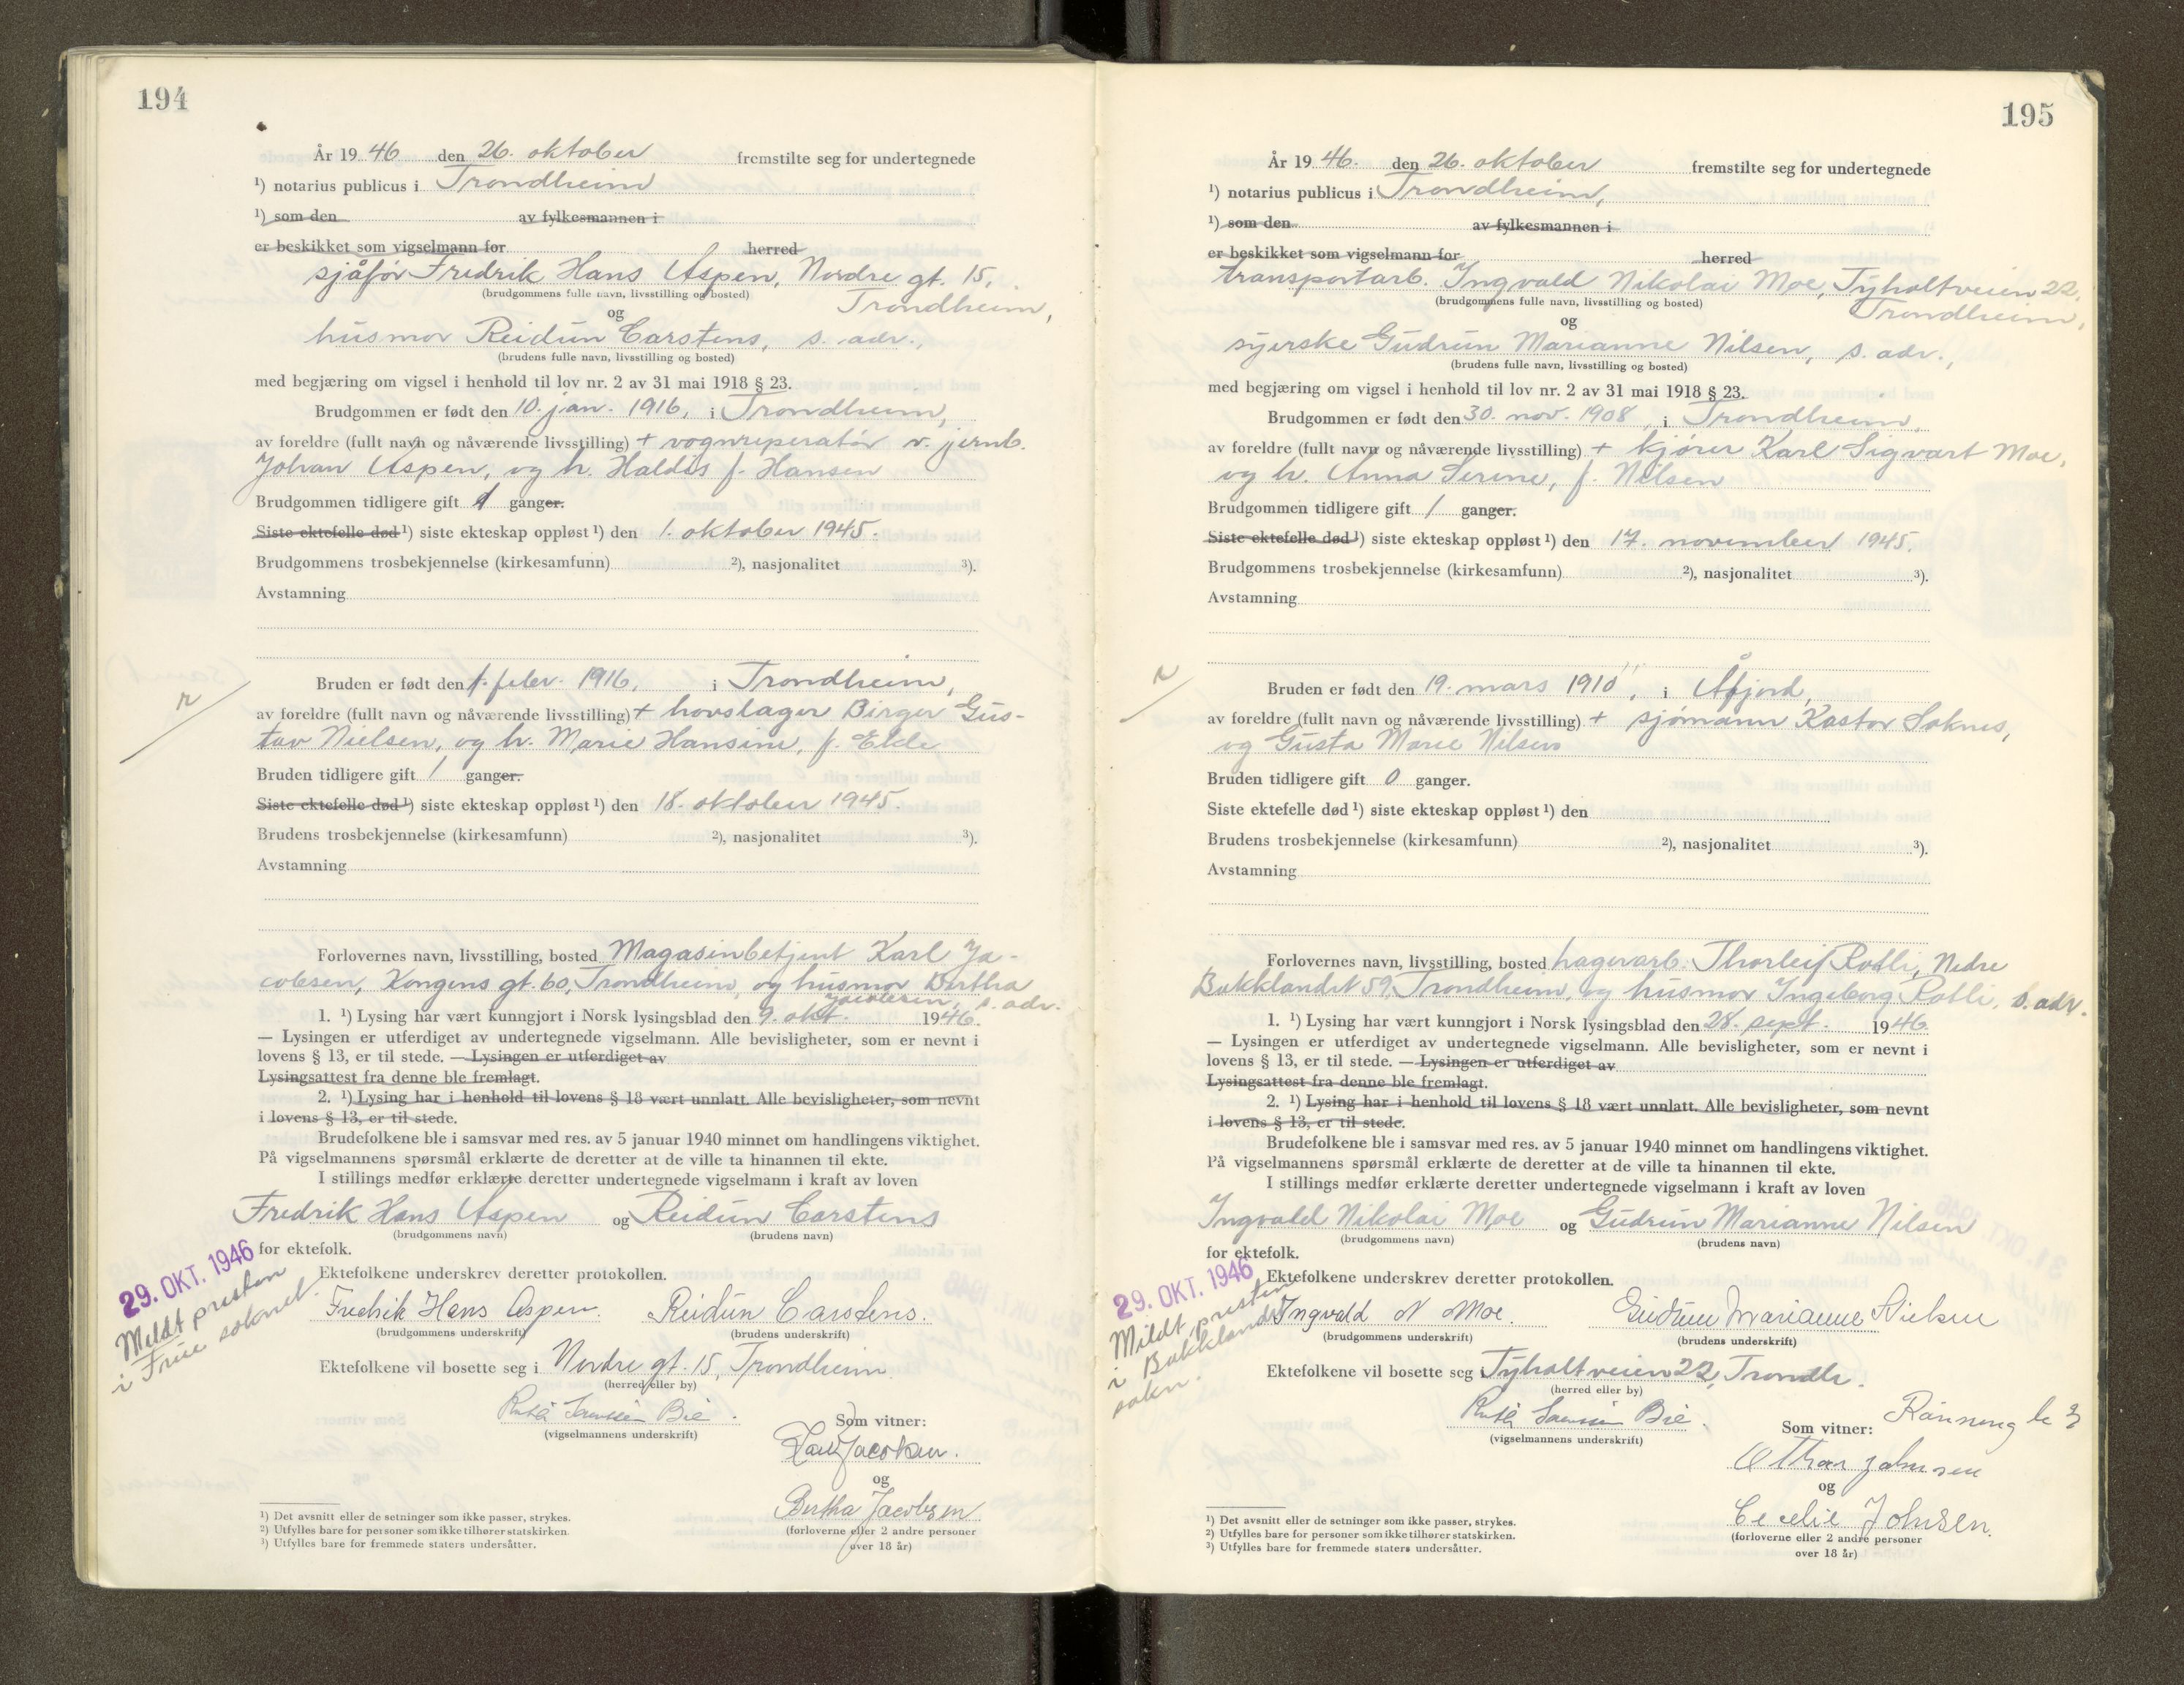 194
År 19 46 den 26. oktober fremstilte seg for undertegnede
¹) notarius publicus i Trondheim
¹) som den av fylkesmannen i
er beskikket som vigselmann for herred
sjåfør Fredrik Hans Aspen, Nordre gt. 15,
(brudgommens fulle navn, livsstilling og bosted)
Trondheim,
og
husmor Reidun Carstens, s. adr.,
(brudens fulle navn, livsstilling og bosted)
med begjæring om vigsel i henhold til lov nr. 2 av 31 mai 1918 § 23.
Brudgommen er født den 10. jan. 1916, i Trondheim,
av foreldre (fullt navn og nåværende livsstilling) + vognreperatør v. jernb.
Johan Aspen, og h. Haldis f. Hansen
Brudgommen tidligere gift 1 ganger.
Siste ektefelle død ¹) siste ekteskap oppløst ¹) den 1. oktober 1945.
Brudgommens trosbekjennelse (kirkesamfunn) ²), nasjonalitet ³).
Avstamning
Bruden er født den 1. febr. 1916, i Trondheim,
av foreldre (fullt navn og nåværende livsstilling) + hovslager Birger Gus-
tav Nielsen, og h. Marie Hansine, f. Ekle
Bruden tidligere gift 1 ganger.
Siste ektefelle død ¹) siste ekteskap oppløst ¹) den 18. oktober 1945.
Brudens trosbekjennelse (kirkesamfunn) ²), nasjonalitet ³).
Avstamning
Forlovernes navn, livsstilling, bosted Magasinbetjent Karl Ja-
cobsen, Kongens gt. 60, Trondheim, og husmor Bertha
Jacobsen, s. adr.
1. ¹) Lysing har vært kunngjort i Norsk lysingsblad den 9. okt. 1946.
— Lysingen er utferdiget av undertegnede vigselmann. Alle bevisligheter, som er nevnt i
lovens § 13, er til stede. — Lysingen er utferdiget av
Lysingsattest fra denne ble fremlagt.
2. ¹) Lysing har i henhold til lovens § 18 vært unnlatt. Alle bevisligheter, som nevnt
i lovens § 13, er til stede.
Brudefolkene ble i samsvar med res. av 5 januar 1940 minnet om handlingens viktighet.
På vigselmannens spørsmål erklærte de deretter at de ville ta hinannen til ekte.
I stillings medfør erklærte deretter undertegnede vigselmann i kraft av loven
Fredrik Hans Aspen og Reidun Carstens
(brudgommens navn) (brudens navn)
for ektefolk.
29. OKT. 1946
Meldt presten
i Frue soknet.
Ektefolkene underskrev deretter protokollen.
Fredrik Hans Aspen. Reidun Carstens.
(brudgommens underskrift) (brudens underskrift)
Ektefolkene vil bosette seg i Nordre gt. 15, Trondheim.
(herred eller by)
(vigselmannens underskrift)
Som vitner:
Karl Jacobsen.
og
Bertha Jacobsen
(forloverne eller 2 andre personer
over 18 år)
¹) Det avsnitt eller de setninger som ikke passer, strykes.
²) Utfylles bare for personer som ikke tilhører statskirken.
³) Utfylles bare for fremmede staters undersåtter.
195
År 19 46. den 26. oktober fremstilte seg for undertegnede
¹) notarius publicus i Trondheim,
¹) som den av fylkesmannen i
er beskikket som vigselmann for herred
transportarb. Ingvald Nikolai Moe, Tyholtveien 22,
(brudgommens fulle navn, livsstilling og bosted)
Trondheim,
og
syerske Gudrun Marianne Nilsen, s. adr.,
(brudens fulle navn, livsstilling og bosted)
med begjæring om vigsel i henhold til lov nr. 2 av 31 mai 1918 § 23.
Brudgommen er født den 30. nov. 1908, i Trondheim,
av foreldre (fullt navn og nåværende livsstilling) + kjører Karl Sigvart Moe,
og h. Anna Serine, f. Nilsen
Brudgommen tidligere gift 1 ganger.
Siste ektefelle død ¹) siste ekteskap oppløst ¹) den 17. november 1945.
Brudgommens trosbekjennelse (kirkesamfunn) ²), nasjonalitet ³).
Avstamning
Bruden er født den 19. mars 1910, i Åfjord,
av foreldre (fullt navn og nåværende livsstilling) + sjømann Kastor Soknes,
og Gusta Marie Nilsen
Bruden tidligere gift 0 ganger.
Siste ektefelle død ¹) siste ekteskap oppløst ¹) den
Brudens trosbekjennelse (kirkesamfunn) ²), nasjonalitet ³).
Avstamning
Forlovernes navn, livsstilling, bosted hagearb. Thorleif Rotli, Nedre
Bakklandet 59, Trondheim, og husmor Ingeborg Rotli, s. adr.
1. ¹) Lysing har vært kunngjort i Norsk lysingsblad den 28. sept. 1946
— Lysingen er utferdiget av undertegnede vigselmann. Alle bevisligheter, som er nevnt i
lovens § 13, er til stede. — Lysingen er utferdiget av
Lysingsattest fra denne ble fremlagt.
2. ¹) Lysing har i henhold til lovens § 18 vært unnlatt. Alle bevisligheter, som nevnt
i lovens § 13, er til stede.
Brudefolkene ble i samsvar med res. av 5 januar 1940 minnet om handlingens viktighet.
På vigselmannens spørsmål erklærte de deretter at de ville ta hinannen til ekte.
I stillings medfør erklærte deretter undertegnede vigselmann i kraft av loven
Ingvald Nikolai Moe og Gudrun Marianne Nilsen
(brudgommens navn) (brudens navn)
for ektefolk.
29. OKT. 1946
Meldt presten
i Bakklandet
sokn.
Ektefolkene underskrev deretter protokollen.
Ingvald N Moe. Gudrun Marianne Nielsen
(brudgommens underskrift) (brudens underskrift)
Ektefolkene vil bosette seg i Tyholtveien 22, Trondh.
(herred eller by)
(vigselmannens underskrift)
Som vitner:
Othar Johnsen
og
Cecelie Johnsen.
(forloverne eller 2 andre personer
over 18 år)
¹) Det avsnitt eller de setninger som ikke passer, strykes.
²) Utfylles bare for personer som ikke tilhører statskirken.
³) Utfylles bare for fremmede staters undersåtter.